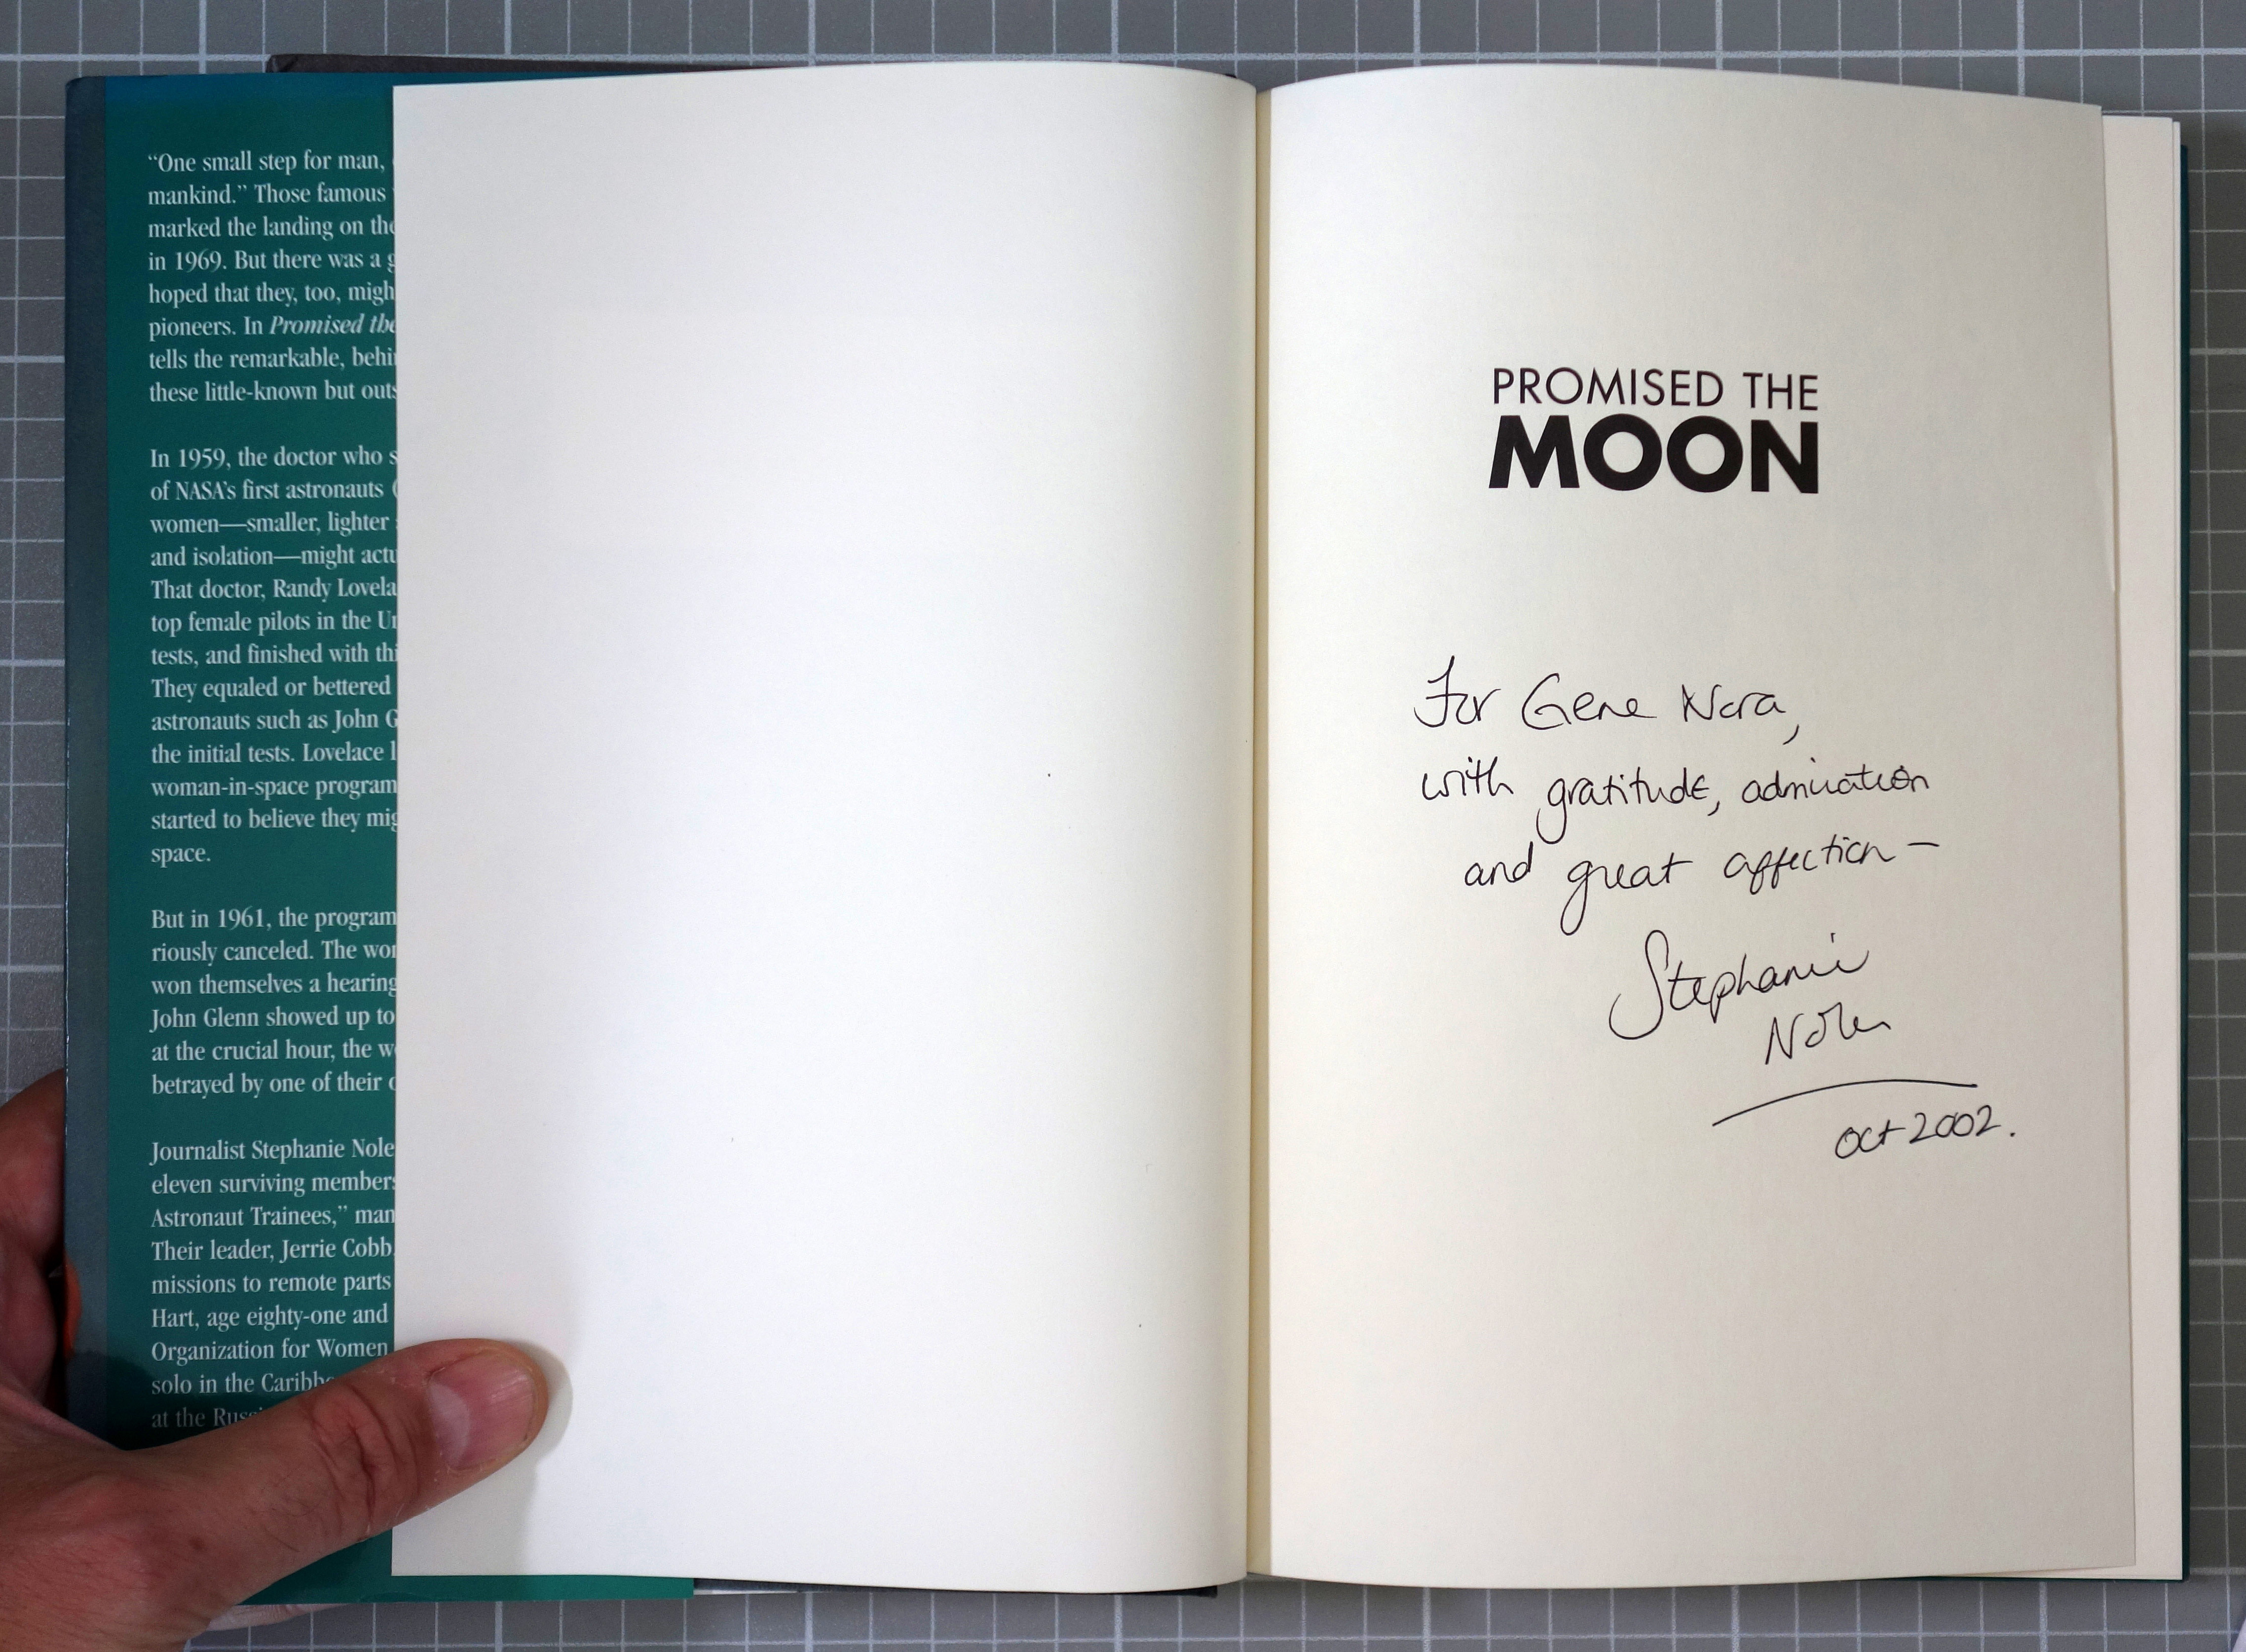 “One small step for man,
mankind.” Those famous
marked the landing on the
in 1969. But there was a g
hoped that they, too, migh
pioneers. In Promised the
tells the remarkable, behi
these little-known but outs
In 1959, the doctor who s
of NASA’s first astronauts (
women—smaller, lighter
and isolation—might actu
That doctor, Randy Lovela
top female pilots in the Un
tests, and finished with thi
They equaled or bettered
astronauts such as John G
the initial tests. Lovelace l
woman-in-space program
started to believe they mig
space.
But in 1961, the program
riously canceled. The wo
won themselves a hearing
John Glenn showed up to
at the crucial hour, the w
betrayed by one of their o
Journalist Stephanie Nole
eleven surviving members
Astronaut Trainees,” man
Their leader, Jerrie Cobb,
missions to remote parts
Hart, age eighty-one and
Organization for Women
solo in the Caribbe
at the Russ
PROMISED THE
MOON
For Gene Nora,
with gratitude, admiration
and great affection –
Stephanie
Nolen
Oct 2002.